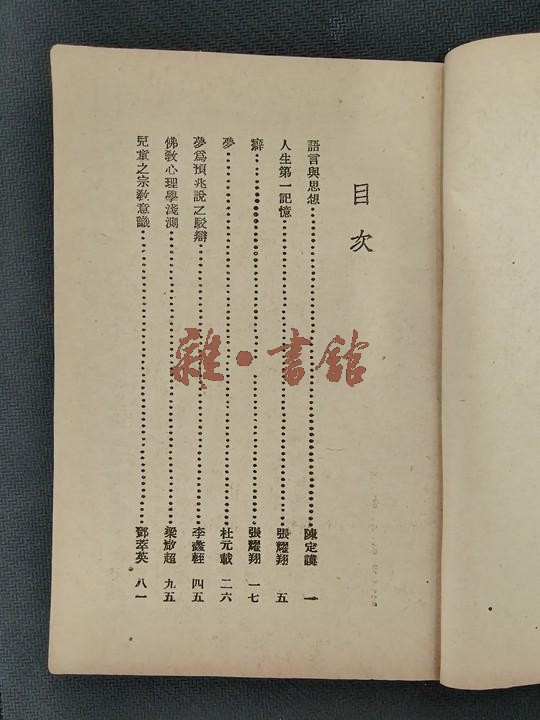 目次
語言與思想 陳定謨 一
人生第一記憶 張耀翔 五
癖 張耀翔 一七
夢 杜元載 二六
夢爲預兆說之駁辯 李蠡輊 四五
佛敎心理學淺測 梁啟超 九五
兒童之宗敎意識 鄧萃英 八一
雜·書館